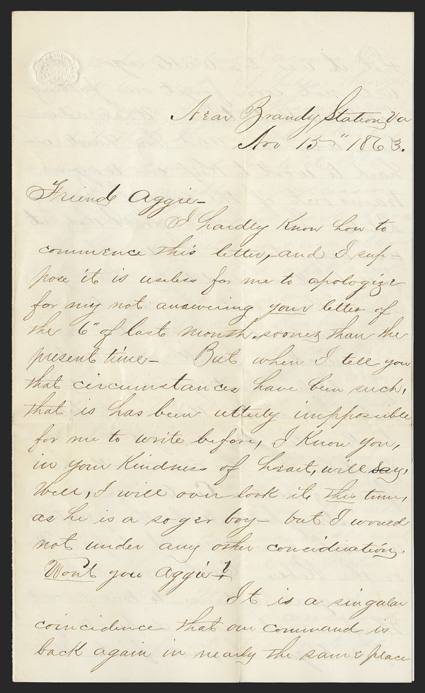 Near Brandy Station Va
Nov 15" 1863.
Friend Aggie—
I hardly know how to
commence this letter, and I sup-
pose it is useless for me to apologize
for my not answering your letter of
the 6" of last month, sooner than the
present time— But when I tell you
that circumstances have been such,
that is has been utterly impposible
for me to write before, I know you,
in your kindness of heart, will say,
Well, I will over look it this time,
as he is a soger boy— but I would
not under any other concideration.
Won't you Aggie?
It is a singular
coincidence that our command is
back again in nearly the same place